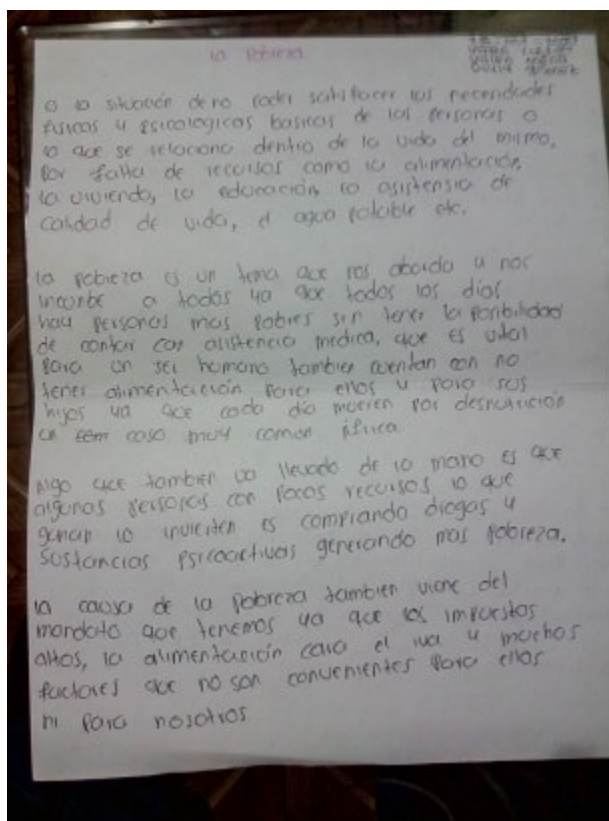 la Pobreza
o la situación de no poder satisfacer las necesidades
físicas y psicologicas basicas de las personas o
lo que se relaciona dentro de la vida del mismo,
por falta de recursos como la alimentación,
la vivienda, la educación la asistensia de
calidad de vida, el agua potable etc.
la pobreza es un tema que nos aborda y nos
incumbe a todos ya que todos los días
hay personas mas pobres sin tener la posibilidad
de contar con asistencia medica, que es vital
para un ser humano tambien cuentan con no
tener alimentación para ellos y para sus
hijos ya que cada dia mueren por desnutrición
un caso muy comun áfrica
Algo que tambien va llevado de la mano es que
algunas personas con pocos recursos lo que
ganan lo invierten es comprando drogas y
sustancias psicoactivas generando mas pobreza.
la causa de la pobreza tambien viene del
mandato que tenemos ya que los impuestos
altos, la alimentación cara el iva y muchos
factores que no son convenientes para ellos
ni para nosotros